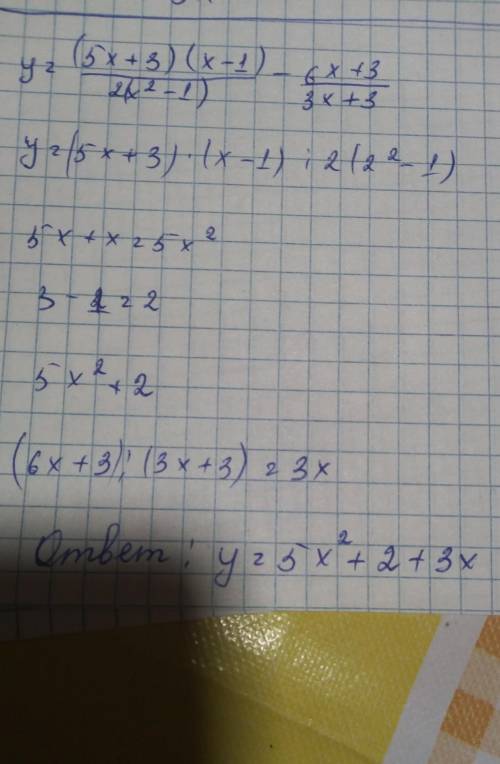 y = (5x+3)(x-1) / 2(x² - 1) - 6x+3 / 3x+3
y = (5x+3)·(x-1) : 2(2²-1)
5x+x=5x²
3-1=2
5x²+2
(6x+3):(3x+3)=3x
Ответ: y=5x²+2+3x